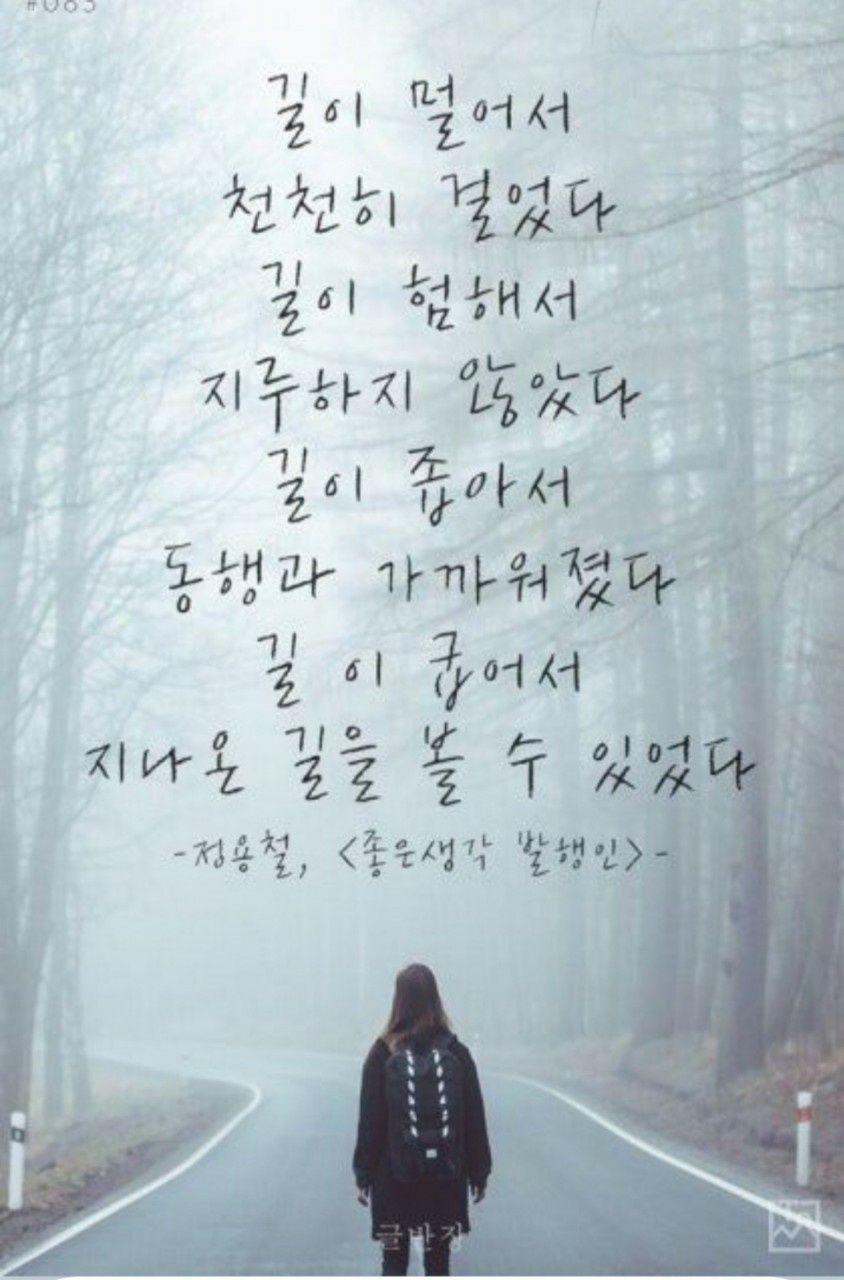 #083
길이 멀어서
천천히 걸었다
길이 험해서
지루하지 않았다
길이 좁아서
동행과 가까워졌다
길 이 굽어서
지나온 길을 볼 수 있었다
-정용철, <좋은생각 발행인>-
글반장